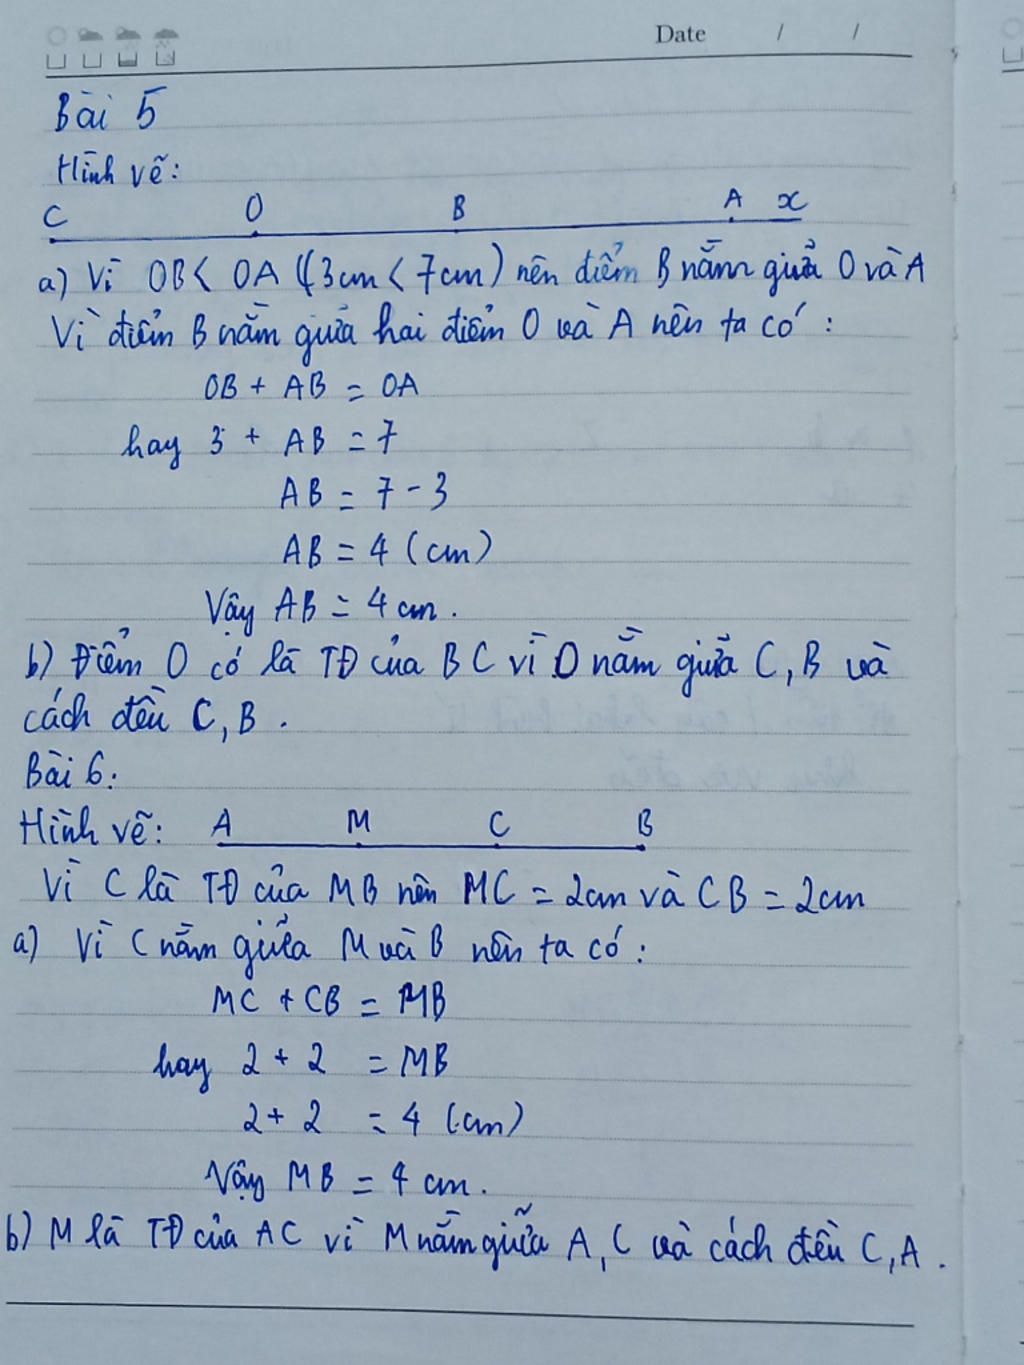 Date / /
Bài 5
Hình vẽ:
C O B A x
a) Vì OB < OA ((3cm < 7cm) nên điểm B nằm giữa O và A
Vì điểm B nằm giữa hai điểm O và A nên ta có :
OB + AB = OA
hay 3 + AB = 7
AB = 7 - 3
AB = 4 (cm)
Vậy AB = 4 cm .
b) Điểm O có là TĐ của BC vì O nằm giữa C, B và
cách đều C, B .
Bài 6:
Hình vẽ: A M C B
Vì C là TĐ của MB nên MC = 2cm và CB = 2cm
a) Vì C nằm giữa M và B nên ta có :
MC + CB = MB
hay 2 + 2 = MB
2 + 2 = 4 (cm)
Vậy MB = 4 cm .
b) M là TĐ của AC vì M nằm giữa A, C và cách đều C, A .